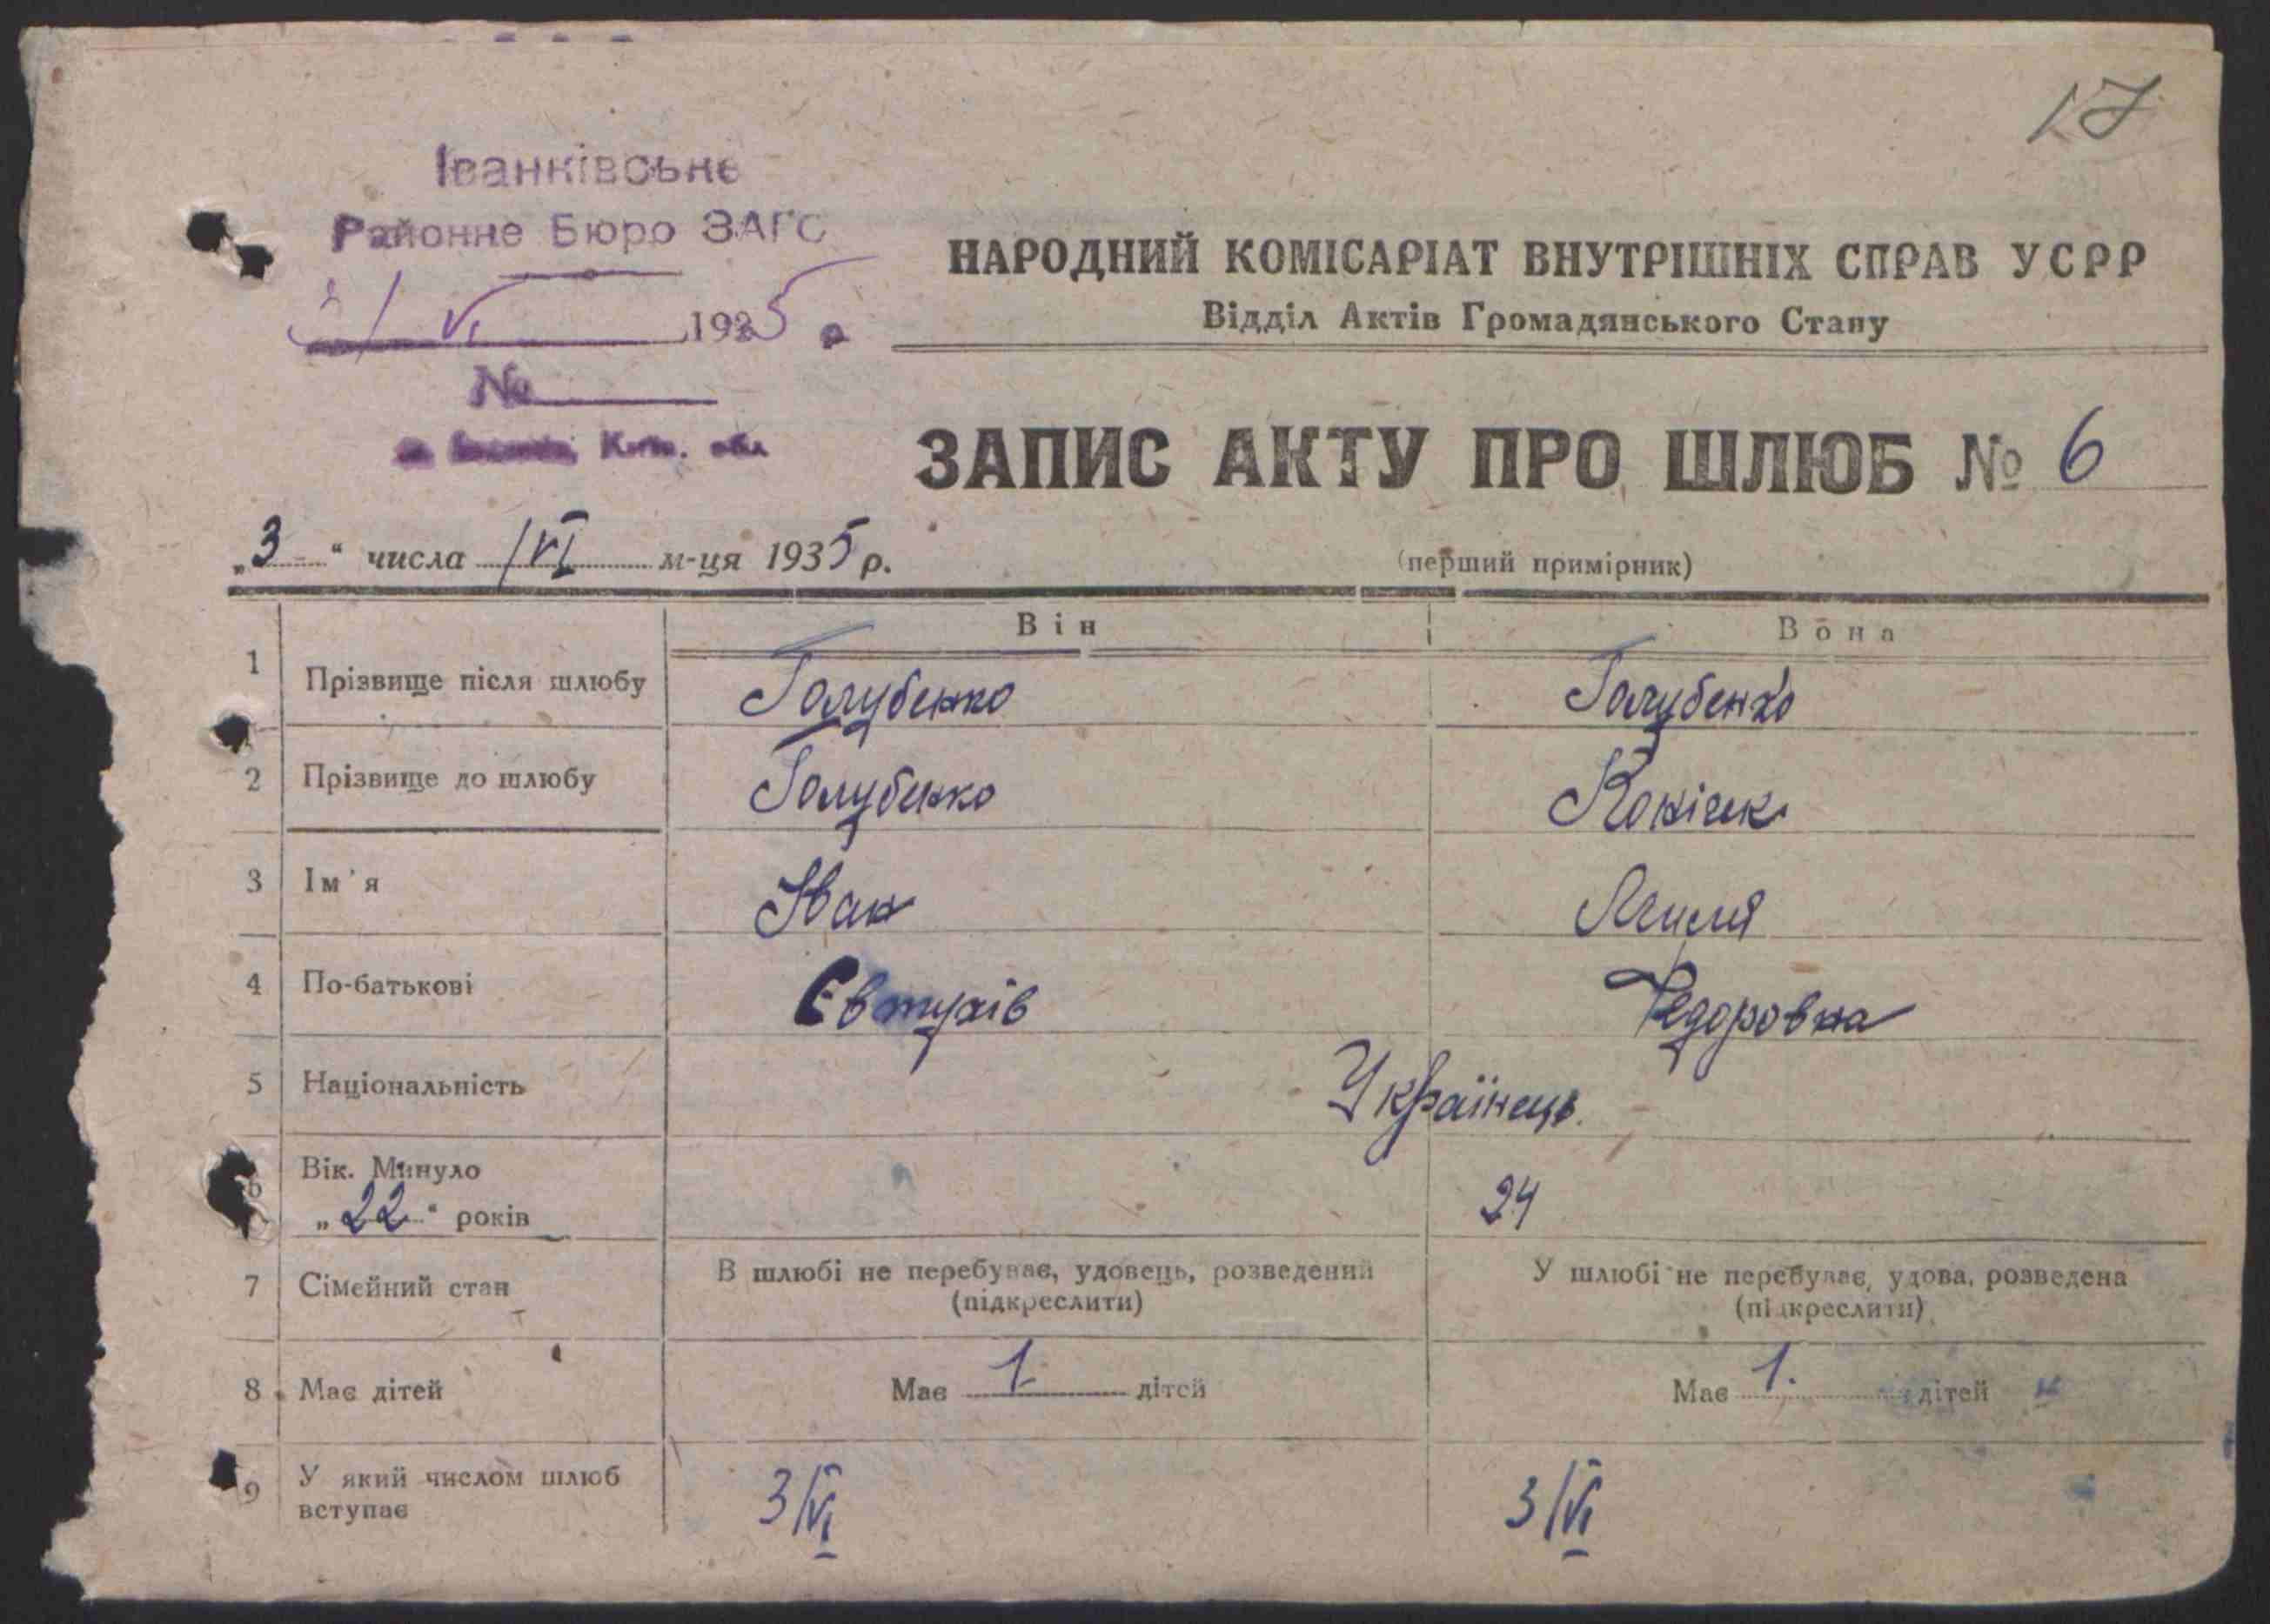 17
Іванківське
Районне Бюро ЗАГС
3/VI 1935 р
№
Київ. обл
НАРОДНИЙ КОМІСАРІАТ ВНУТРІШНІХ СПРАВ УСРР
Відділ Актів Громадянського Стану
ЗАПИС АКТУ ПРО ШЛЮБ № 6
„3“ числа /VI м-ця 1935 р.
(перший примірник)
Він Вона
1 Прізвище після шлюбу Голубенко Голубенко
2 Прізвище до шлюбу Голубенко
3 Ім'я Іван
4 По-батькові Євтухів Федоровна
5 Національність Українець.
6 Вік. Минуло
„22“ років 24
7 Сімейний стан В шлюбі не перебуває, удовець, розведений У шлюбі не перебуває, удова, розведена
(підкреслити) (підкреслити)
8 Має дітей Має 1 дітей Має 1. дітей
9 У який числом шлюб
вступає 3/VI 3/VI